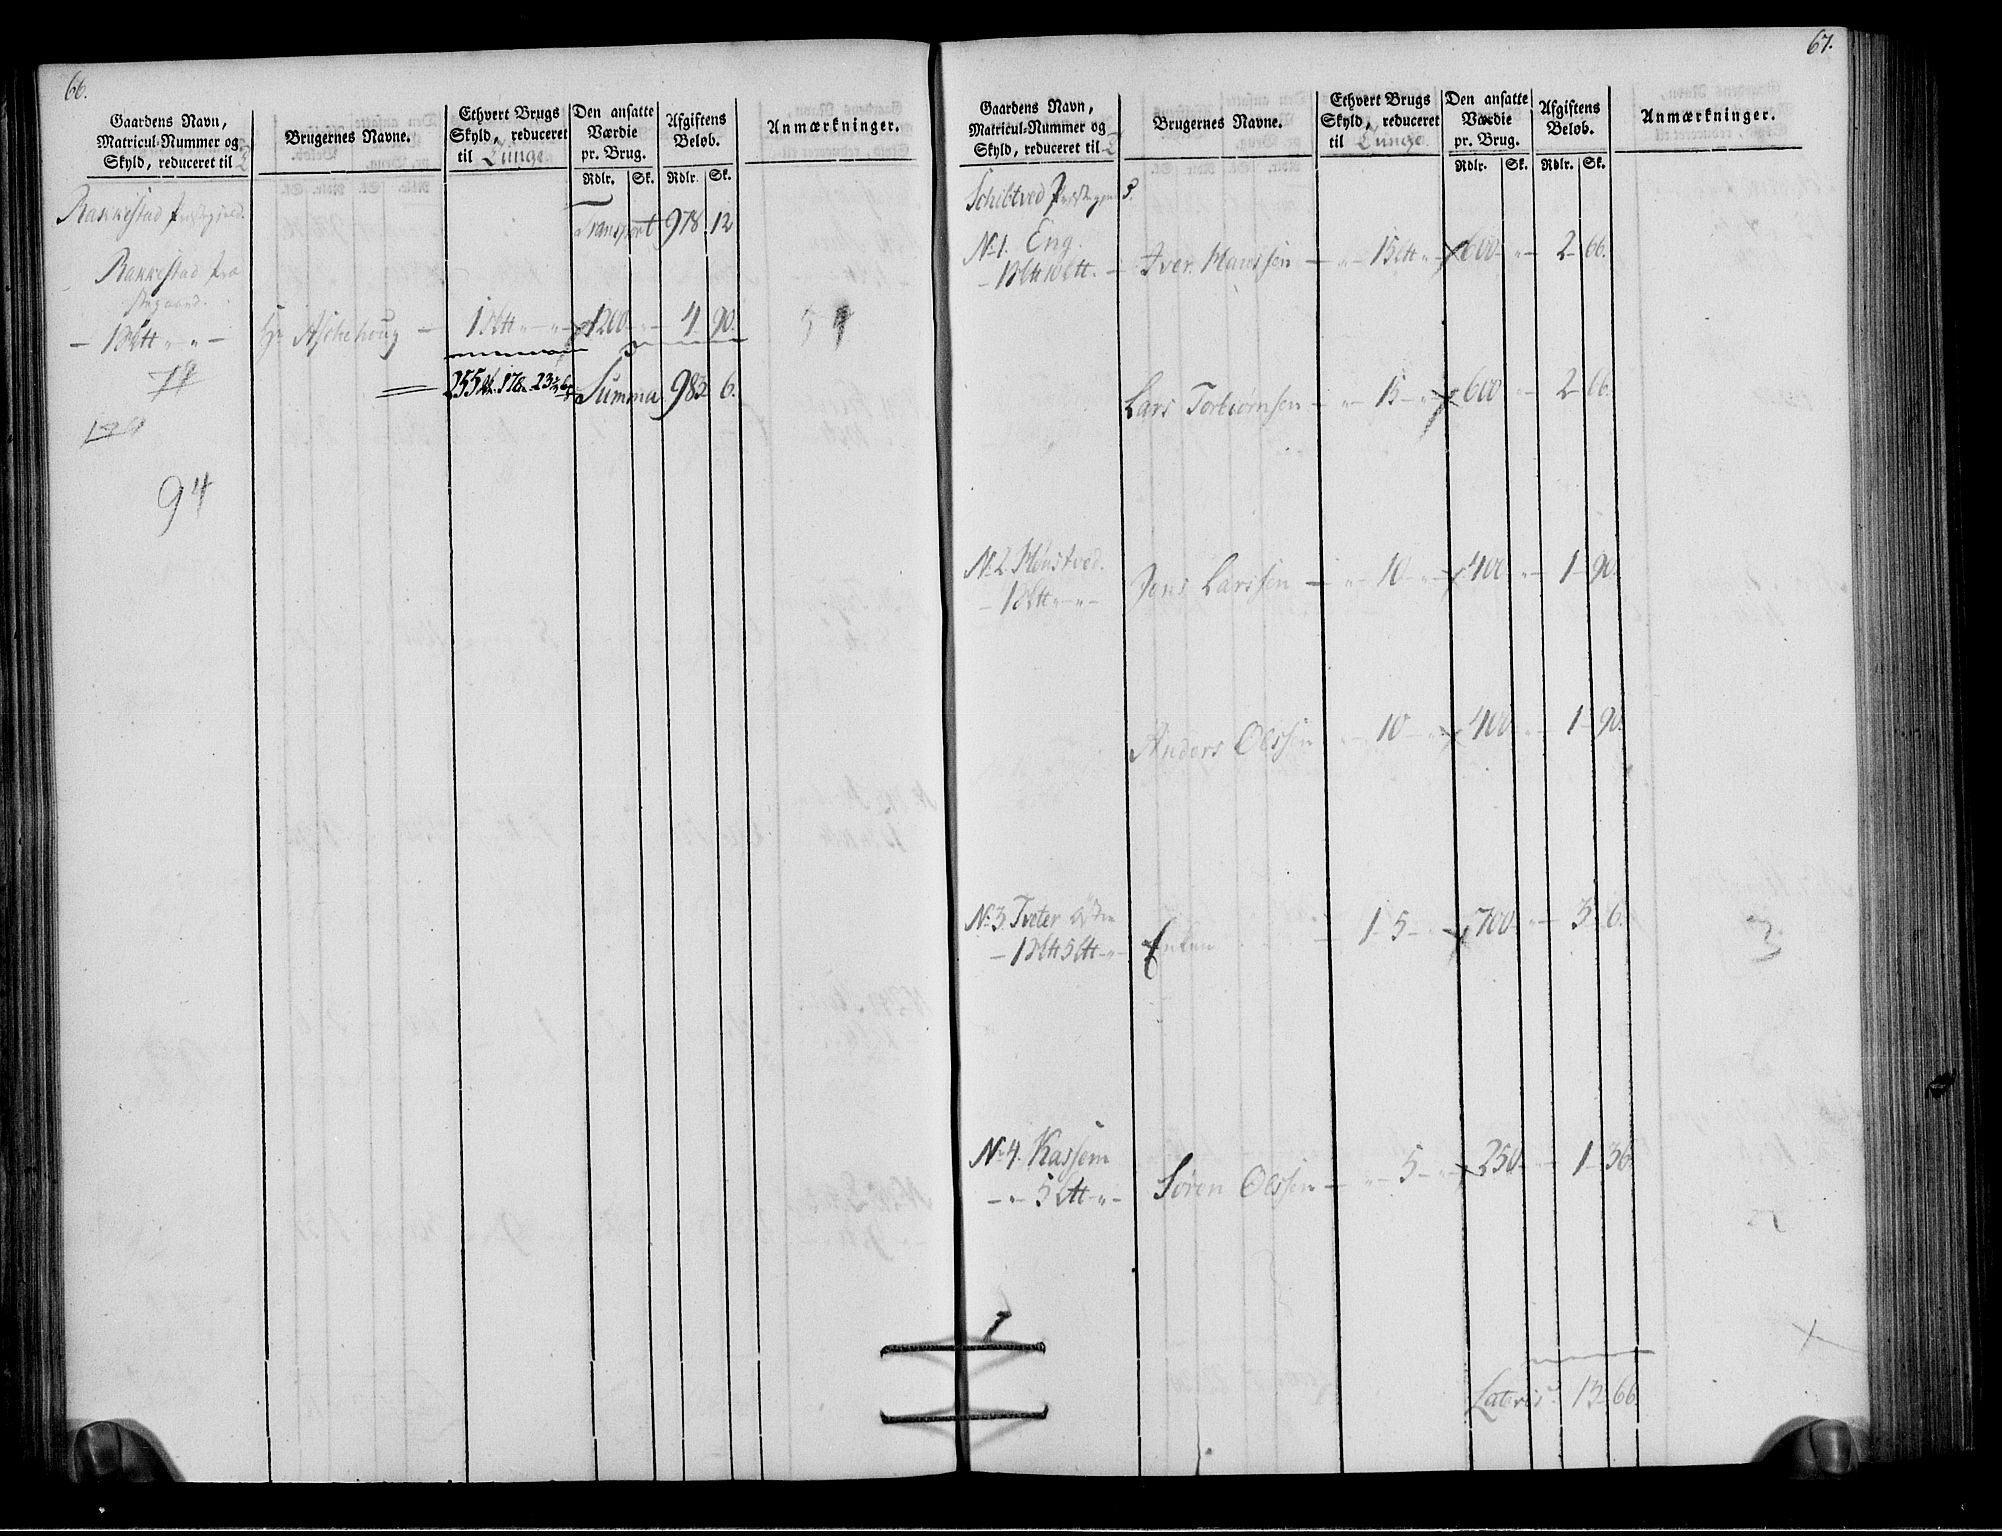 66.
Gaardens Navn,
Matricul-Nummer og
Skyld, reduceret til
Brugernes Navne.
Ethvert Brugs
Skyld, reduceret
til Tunge
Den ansatte
Værdie
pr. Brug.
Rdlr. Sk.
Afgiftens
Beløb.
Rdlr. Sk.
Anmærkninger.
Rakkestad
Transport 978. 12
Rakkestad Præ
stegaard.
Hr Aschehoug 1200 4 90.
255 178 Summa 983 6.
94
67.
Gaardens Navn,
Matricul-Nummer og
Skyld, reduceret til
Brugernes Navne.
Ethvert Brugs
Skyld, reduceret
til Tunge
Den ansatte
Værdie
pr. Brug.
Rdlr. Sk.
Afgiftens
Beløb.
Rdlr. Sk.
Anmærkninger.
Schibtved
No 1. Eng.
Iver Hanssen 15 600 2 66.
Lars Torbiørnsen 15 600 2 66
No 2
Jens Larssen 10 400 1 90
Anders Olssen 10 400 1 90
No 3 Tveter
Enken 1 5 700 3 6.
No 4. Kassem
Søren Olssen 5 250 1 36.
Lateris 13 66